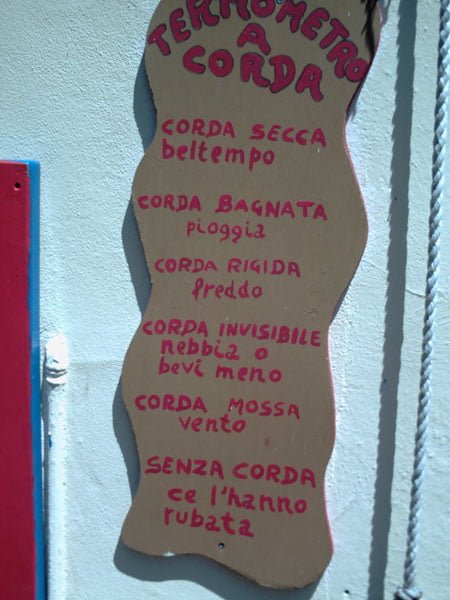 TERMOMETRO
A
CORDA
CORDA SECCA
beltempo
CORDA BAGNATA
pioggia
CORDA RIGIDA
freddo
CORDA INVISIBILE
nebbia o
bevi meno
CORDA MOSSA
vento
SENZA CORDA
ce l'hanno
rubata